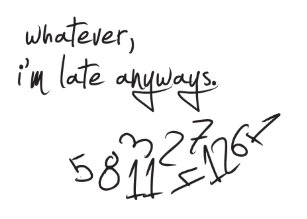 whatever,
i'm late anyways.
5 8 3 11 27 = 126 1